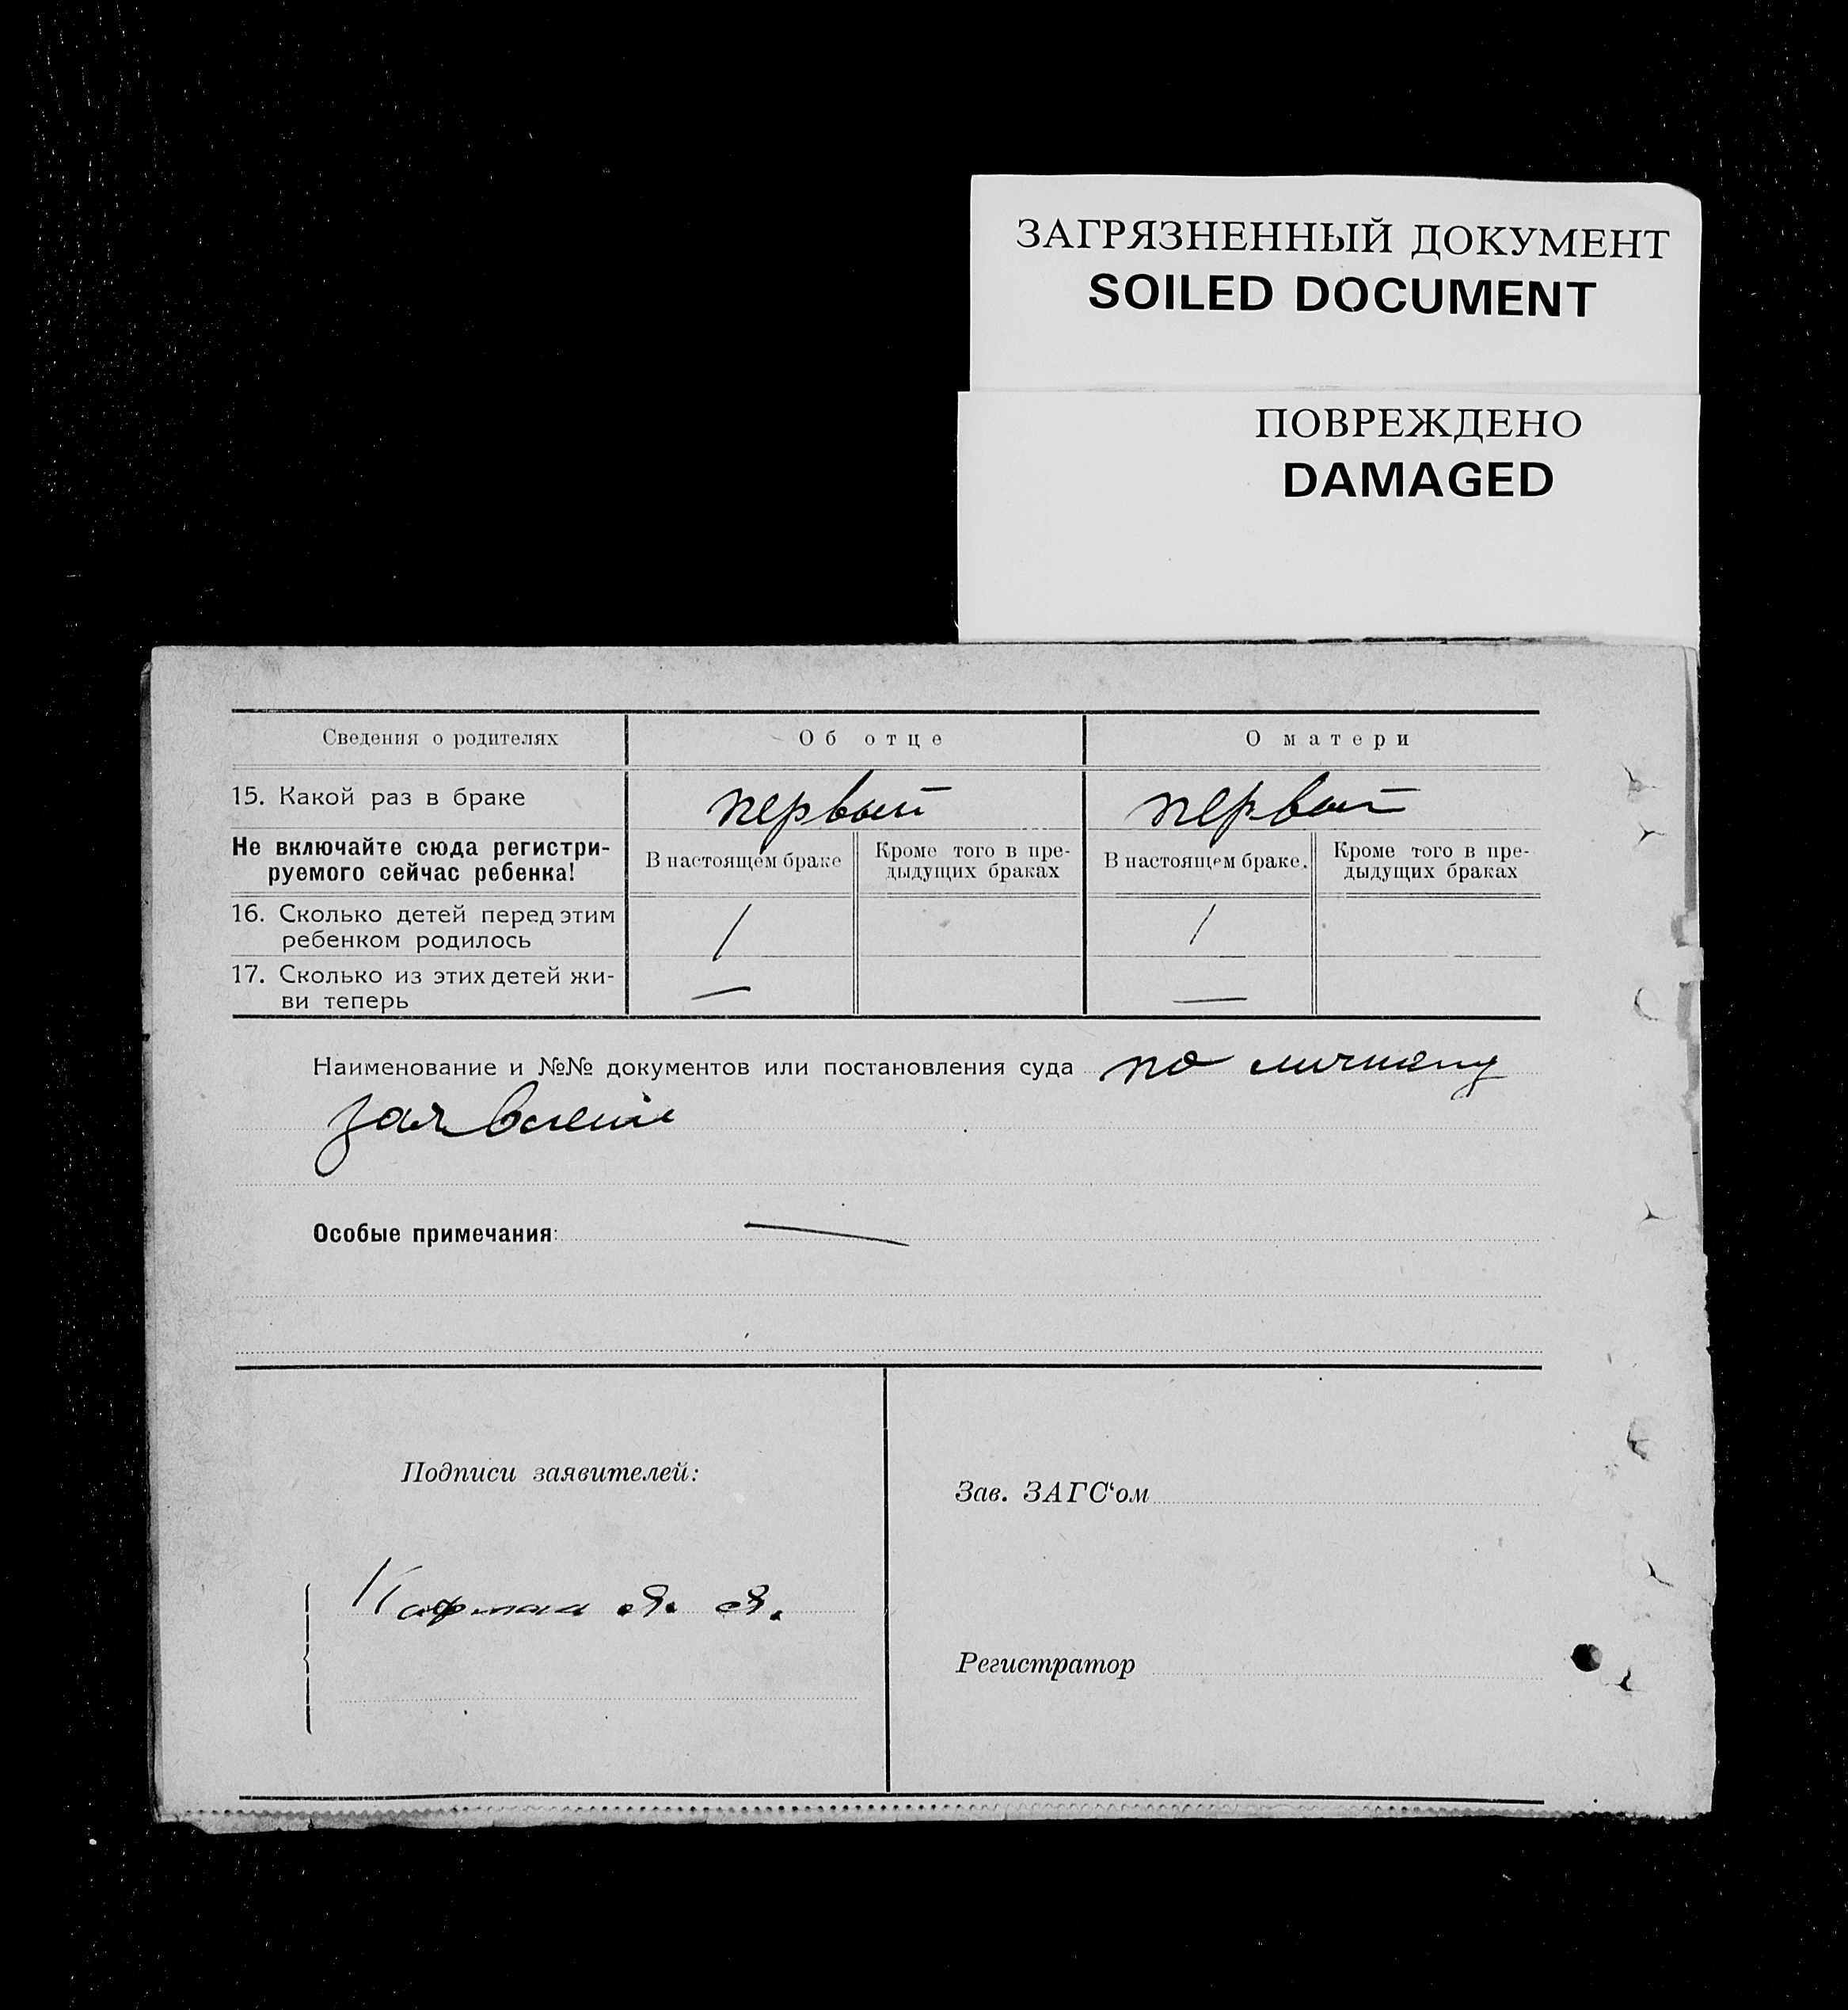 ЗАГРЯЗНЕННЫЙ ДОКУМЕНТ
SOILED DOCUMENT
ПОВРЕЖДЕНО
DAMAGED
Сведения о родителях Об отце О матери
15. Какой раз в браке первый первый
Не включайте сюда регистри-
руемого сейчас ребенка!
В настоящем браке
Кроме того в пре-
дыдущих браках
В настоящем браке.
Кроме того в пре-
дыдущих браках
16. Сколько детей перед этим
ребенком родилось 1 1
17. Сколько из этих детей жи-
ви теперь — —
Наименование и №№ документов или постановления суда по личному
заявлению
Особые примечания: —
Подписи заявителей:
Зав. ЗАГС‘ом
Я. Я.
Регистратор